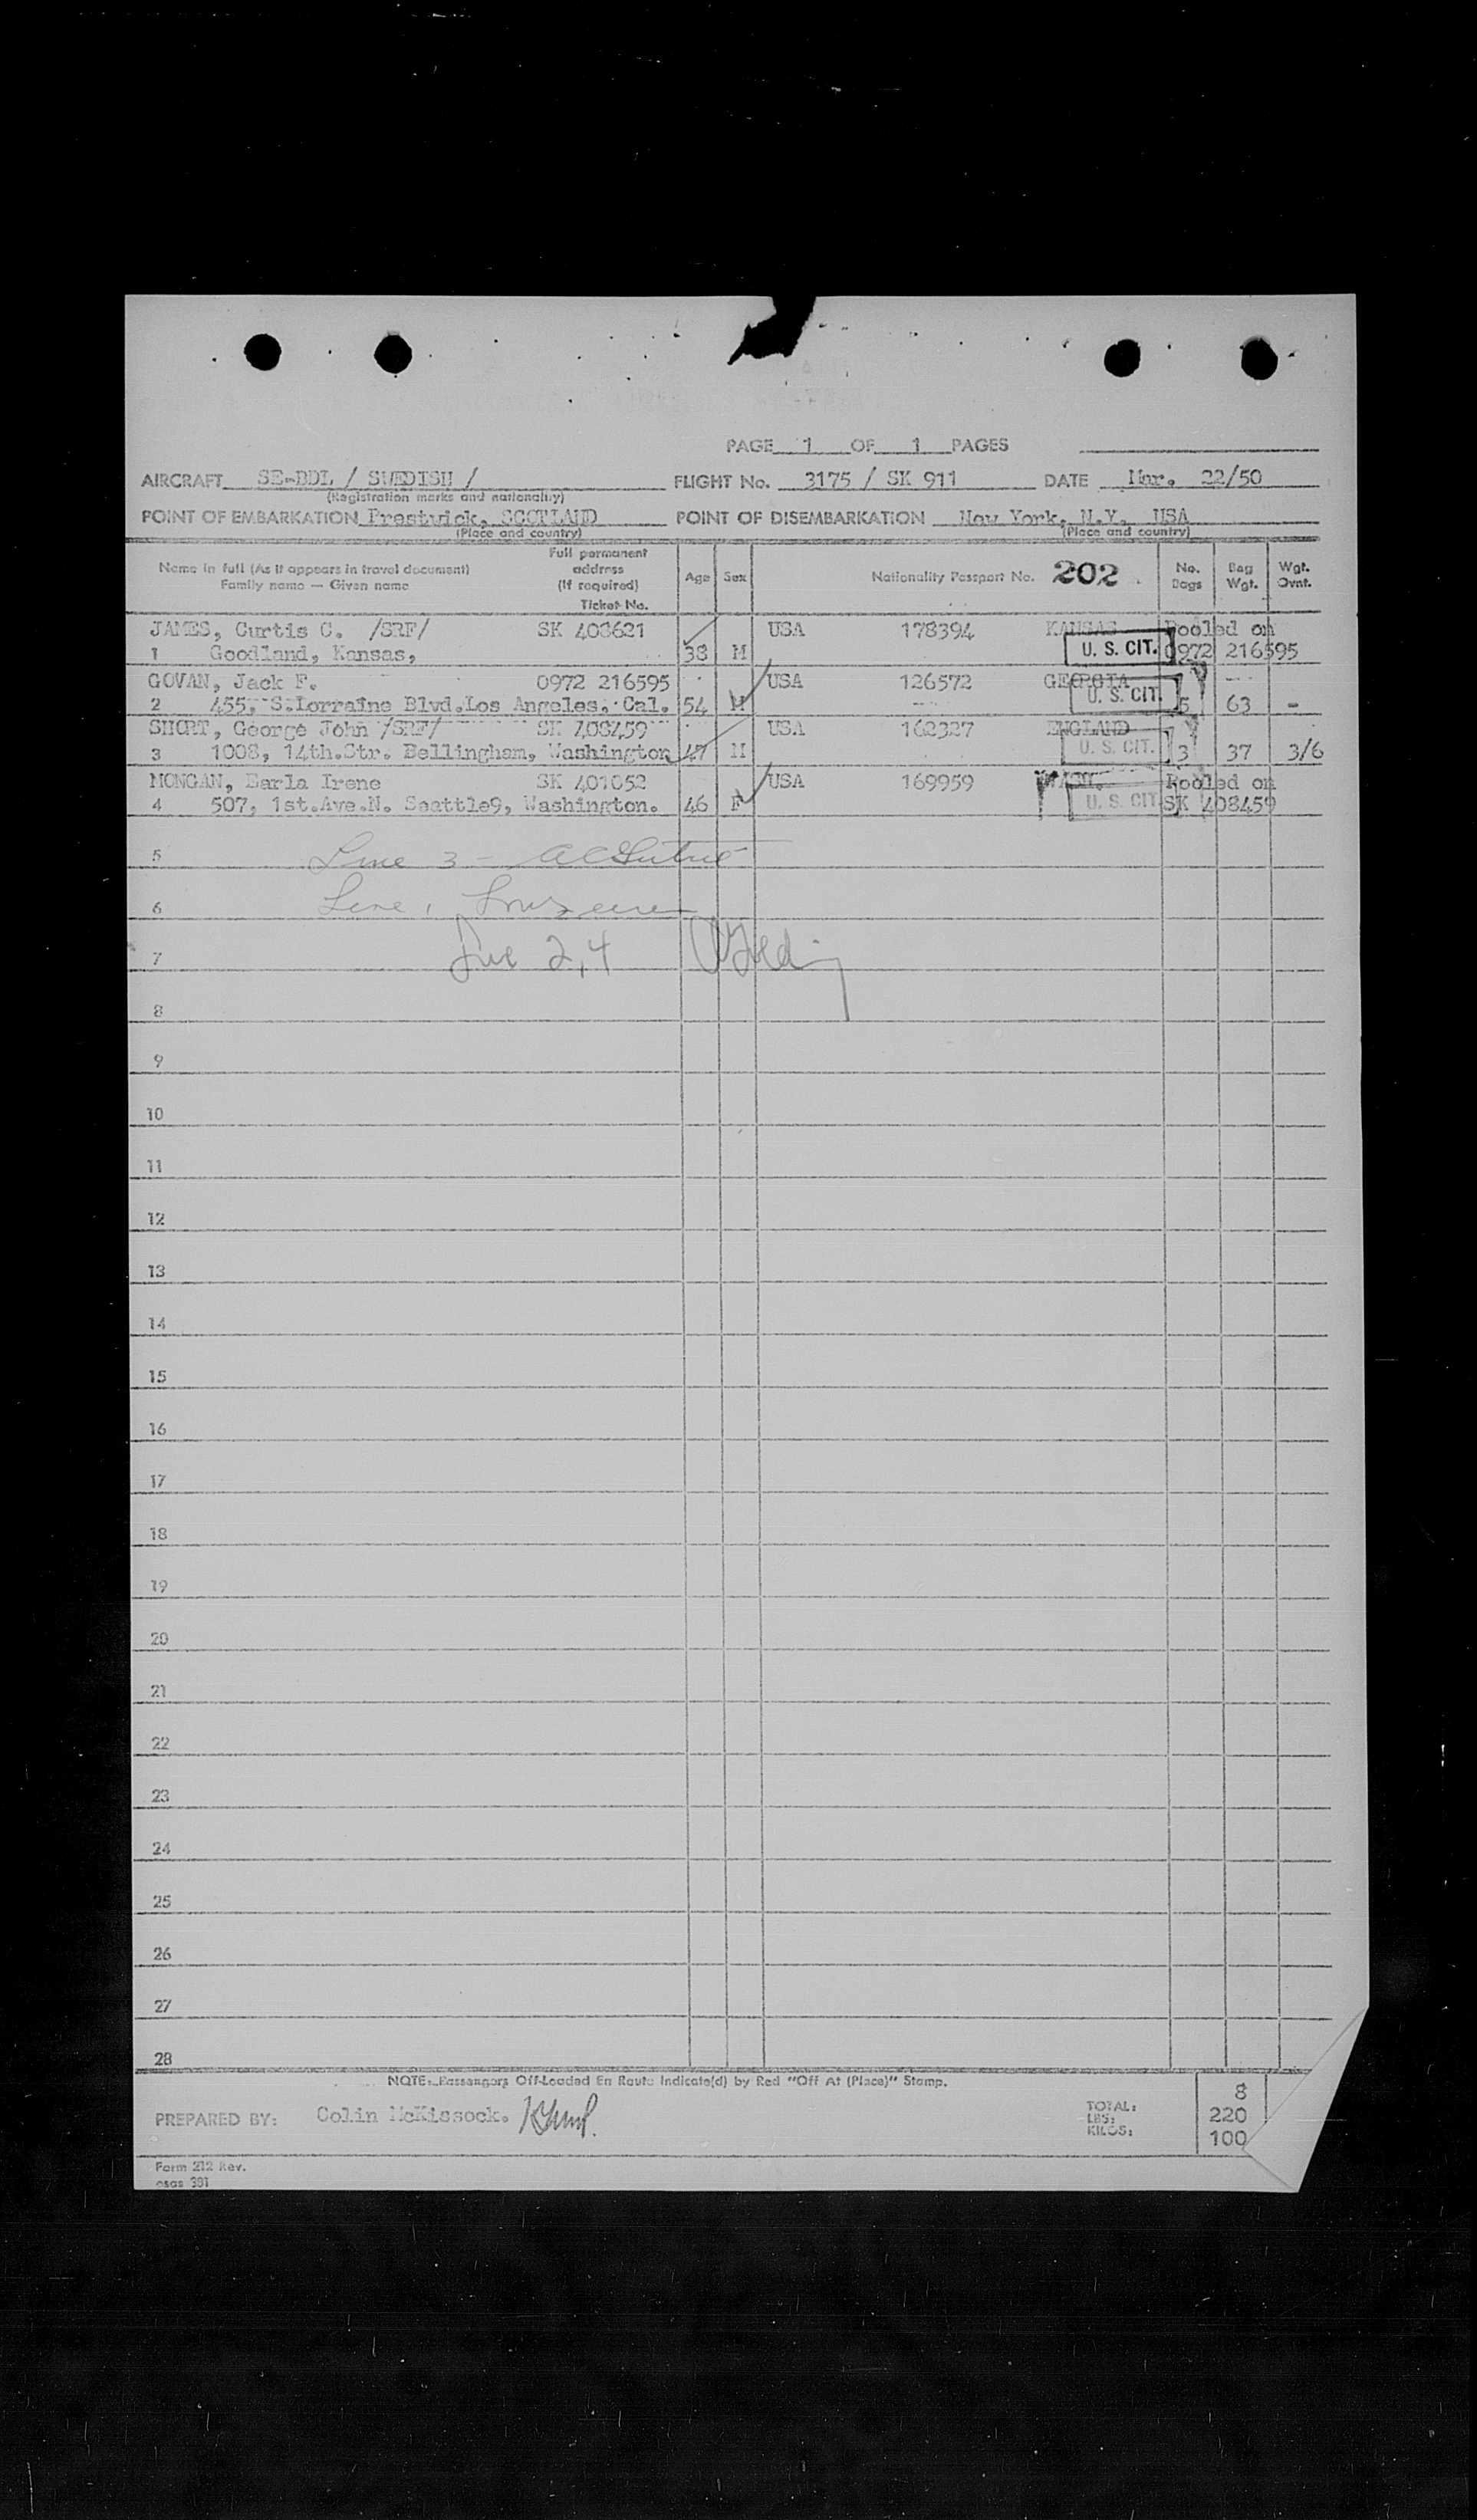 PAGE 1 OF 1 PAGES
AIRCRAFT SE-BDL / SWEDISH / FLIGHT No. 3175 / SK 911 DATE Mar. 22/50
(Registration marks and nationality)
POINT OF EMBARKATION Prestwick, SCOTLAND POINT OF DISEMBARKATION New York, N.Y. USA
(Place and country) (Place and country)
Name in full (As it appears in travel document) Family name — Given name Full permanent address (If required) Ticket No. Age Sex Nationality Passport No. 202 No. Bags Bag Wgt. Wgt. Ovnt.
JAMES, Curtis C. /SRF/ SK 408621 USA 178394 KANSAS Pooled on
1 Goodland, Kansas, 38 M U. S. CIT. 0972 216595
GOVAN, Jack F. 0972 216595 USA 126572 GEORGIA
2 455, S.Lorraine Blvd.Los Angeles, Cal. 54 M U. S. CIT. 5 63 -
SHORT, George John /SRF/ SK 408459 USA 162327 ENGLAND
3 1008, 14th.Str. Bellingham, Washington 47 M U. S. CIT. 3 37 3/6
MONGAN, Earla Irene SK 401052 USA 169959 WASH. Pooled on
4 507, 1st.Ave.N. Seattle9, Washington. 46 F U. S. CIT. SK 408459
5 Line 3 -
6 Line 1
7 Line 2,4
8
9
10
11
12
13
14
15
16
17
18
19
20
21
22
23
24
25
26
27
28
NOTE: Passengers Off-Loaded En Route Indicate(d) by Red "Off At (Place)" Stamp.
PREPARED BY: Colin McKissock.
TOTAL: 8
LBS: 220
KILOS: 100
Form 212 Rev.
osas 381